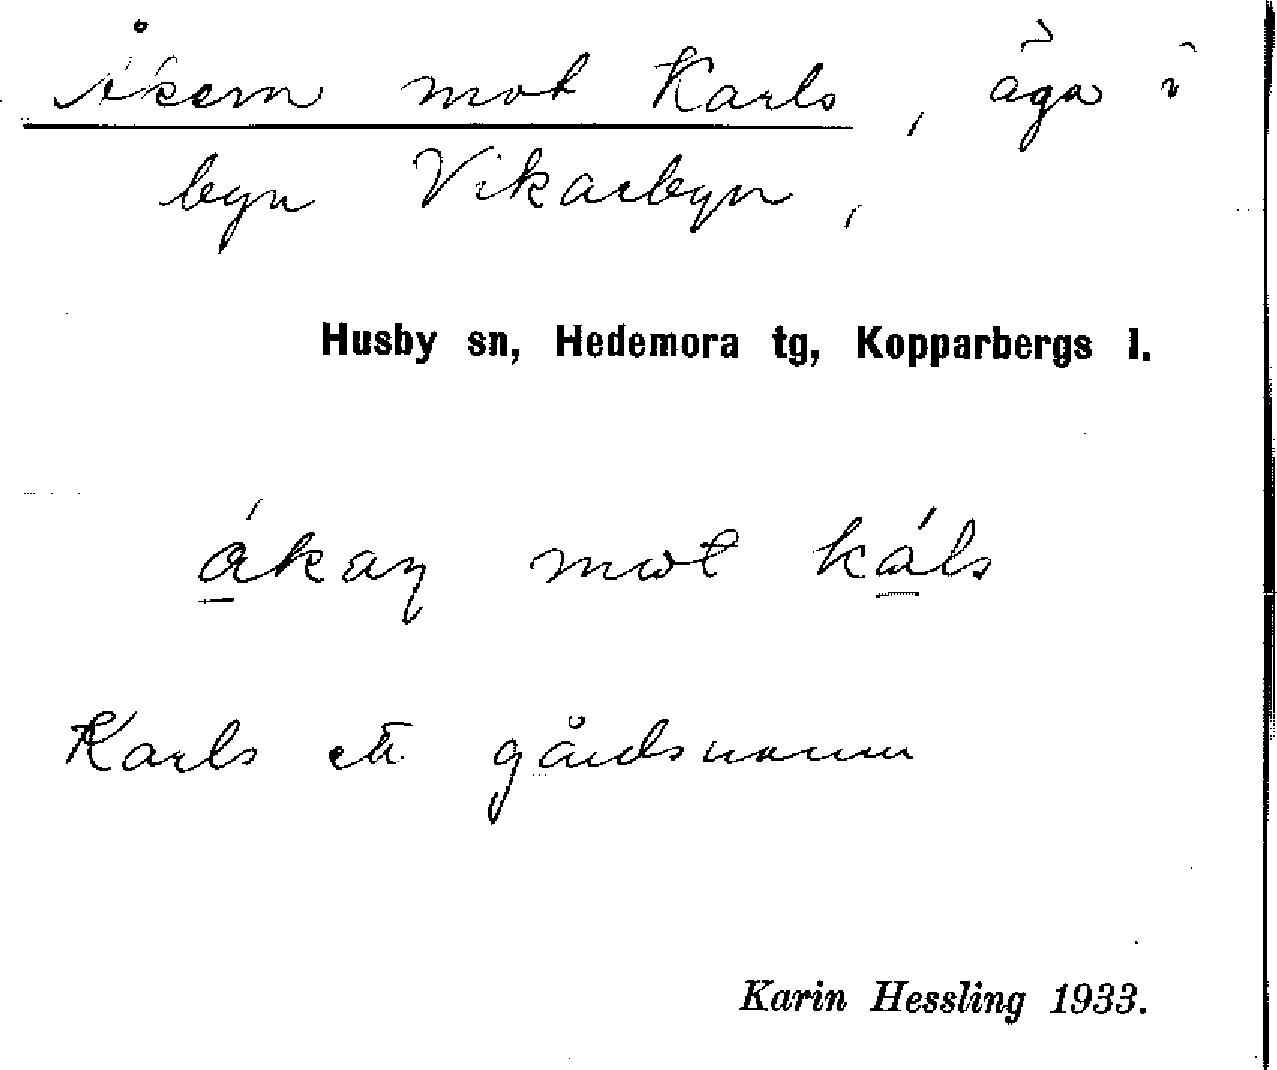 Åkern mot Karls, äga i
byn Vikarbyn,
Husby sn, Hedemora tg, Kopparbergs l.
ákaɳ mωt káls
Karls ett gårdsnamn
Karin Hessling 1933.